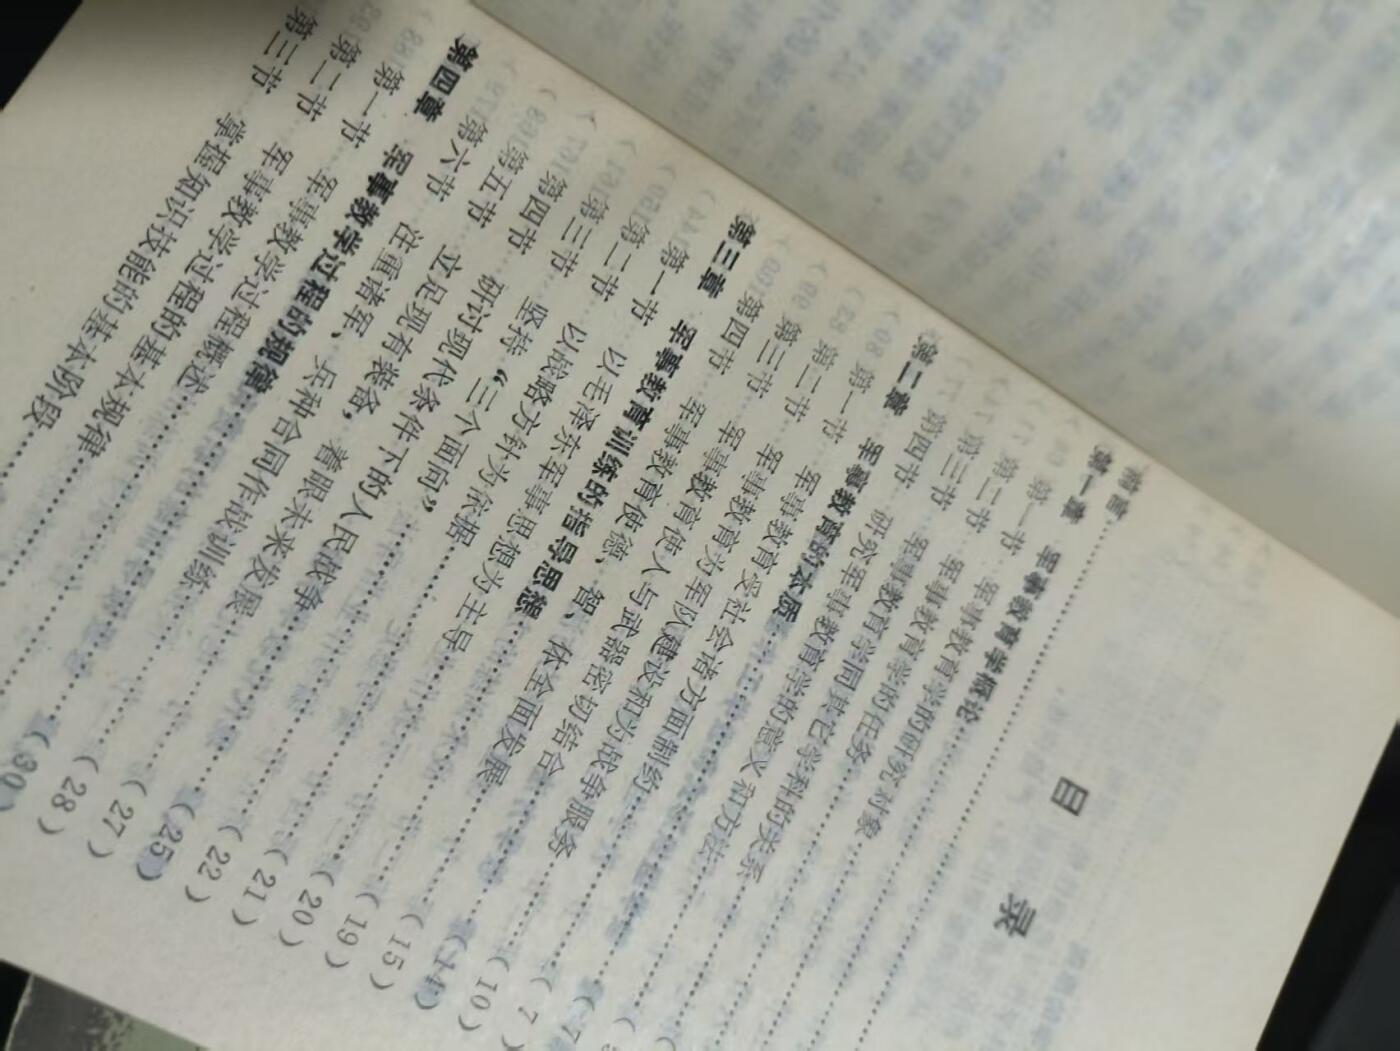 目 录
前言
第一章 军事教育学概论
第一节 军事教育学的研究对象
第二节 军事教育学的任务
第三节 军事教育学同其它学科的关系
第四节 研究军事教育学的意义和方法
第二章 军事教育的本质 (7
第一节 军事教育受社会诸方面制约 (7)
第二节 军事教育为军队建设和为战争服务 (10)
第三节 军事教育使人与武器密切结合 (14)
第四节 军事教育使德、智、体全面发展 (15)
第三章 军事教育训练的指导思想 (19)
第一节 以毛泽东军事思想为主导 (20)
第二节 以战略方针为依据 (21)
第三节 坚持“三个面向” (22)
第四节 研讨现代条件下的人民战争 (25)
第五节 立足现有装备,着眼未来发展 (27)
第六节 注重诸军、兵种合同作战训练 (28)
第四章 军事教学过程的规律 (30)
第一节 军事教学过程概述
第二节 军事教学过程的基本规律
第三节 掌握知识技能的基本阶段